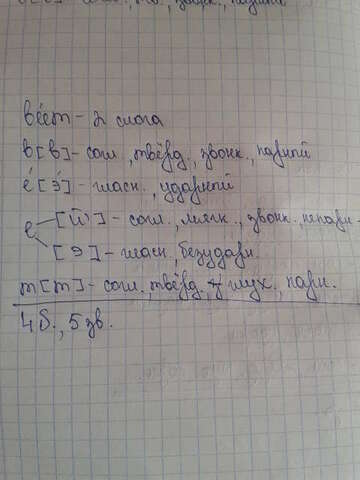 ве́ет - 2 слога
в [в] - согл., твёрд., звонк., парный
е́ [э́] - гласн., ударный
е [й'] - согл., мягк., звонк., непарн.
[э] - гласн., безударн.
т [т] - согл., твёрд., глух., парн.
4 б., 5 зв.